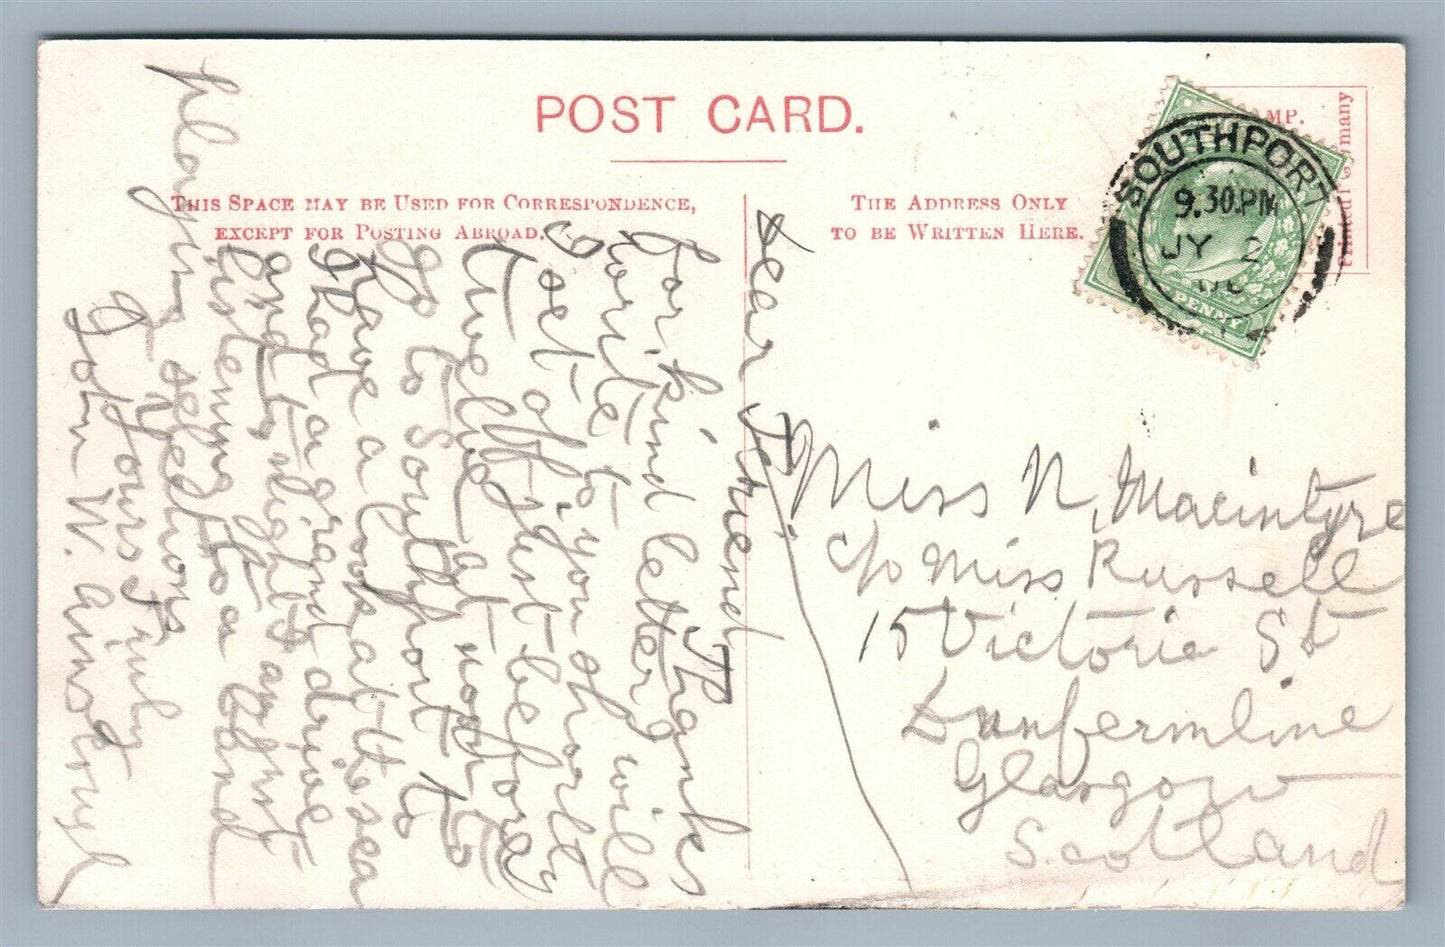 POST CARD.
THIS SPACE MAY BE USED FOR CORRESPONDENCE,
EXCEPT FOR POSTING ABROAD.
THE ADDRESS ONLY
TO BE WRITTEN HERE.
MP.
Printed i Germany
SOUTHPORT
9.30.PM
JY 2
PENNY
Miss N. Macintyre
c/o Miss Russell
15 Victoria St
Dunfermline
Glasgow
Scotland
Dear Friend Thanks
for kind letter will
write to you shortly
Got off just before
twelve and up to
go to Southport to
have a look at the sea
I had a grand drive
and to night am just
listening to a band
playing selections
Yours Truly
John W.